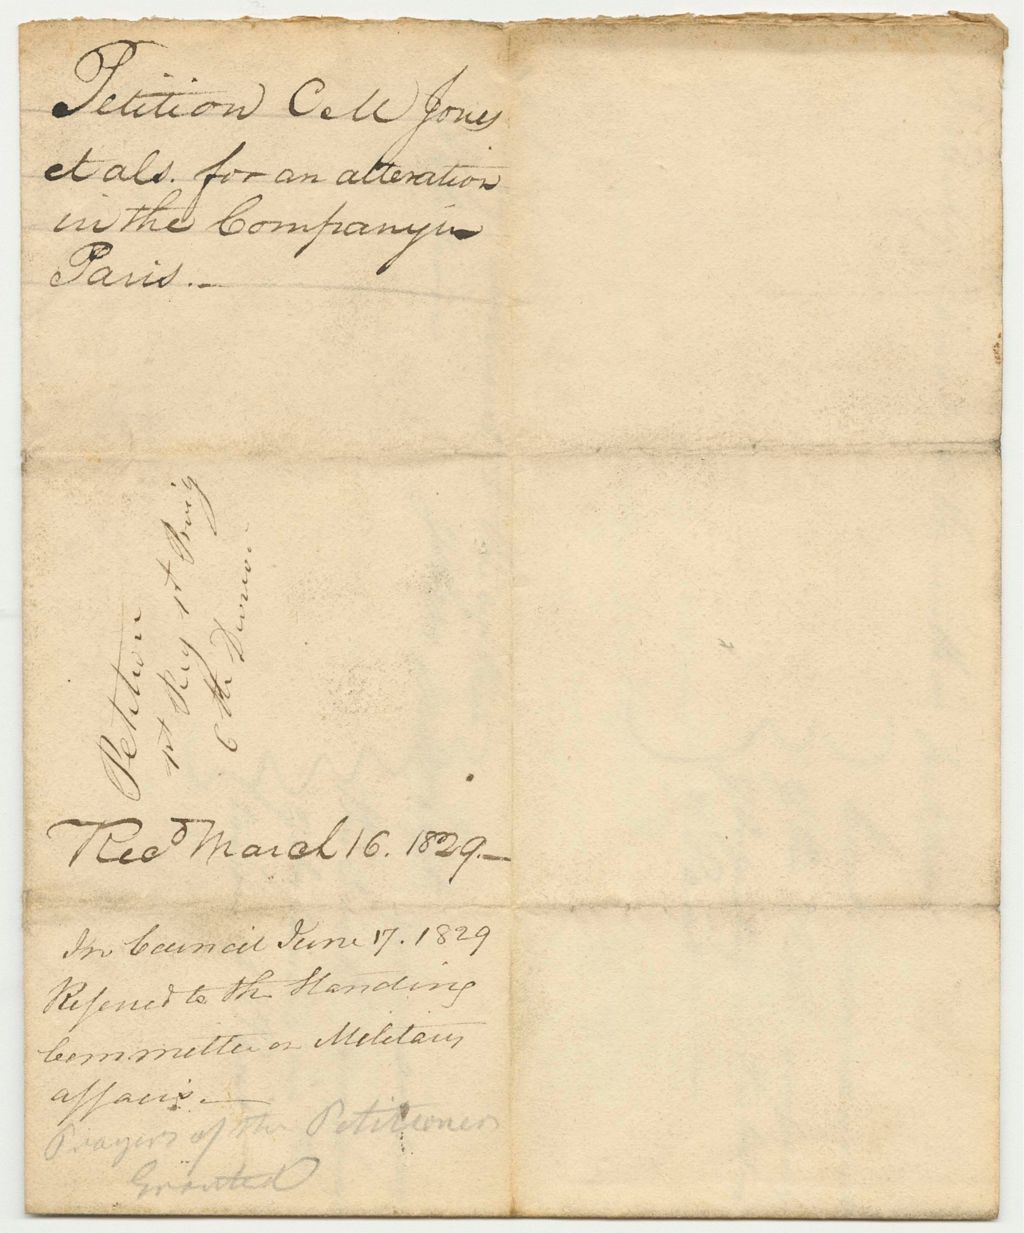 Petition C M Jones
et als. for an alteration
in the Company in
Paris.—
Petition
1st Reg 1st Brig
6th Division
Recd March 16. 1829.—
In Council June 17. 1829
Referred to the Standing
Committee on Military
affairs.—
Prayers of the Petitioners
Granted